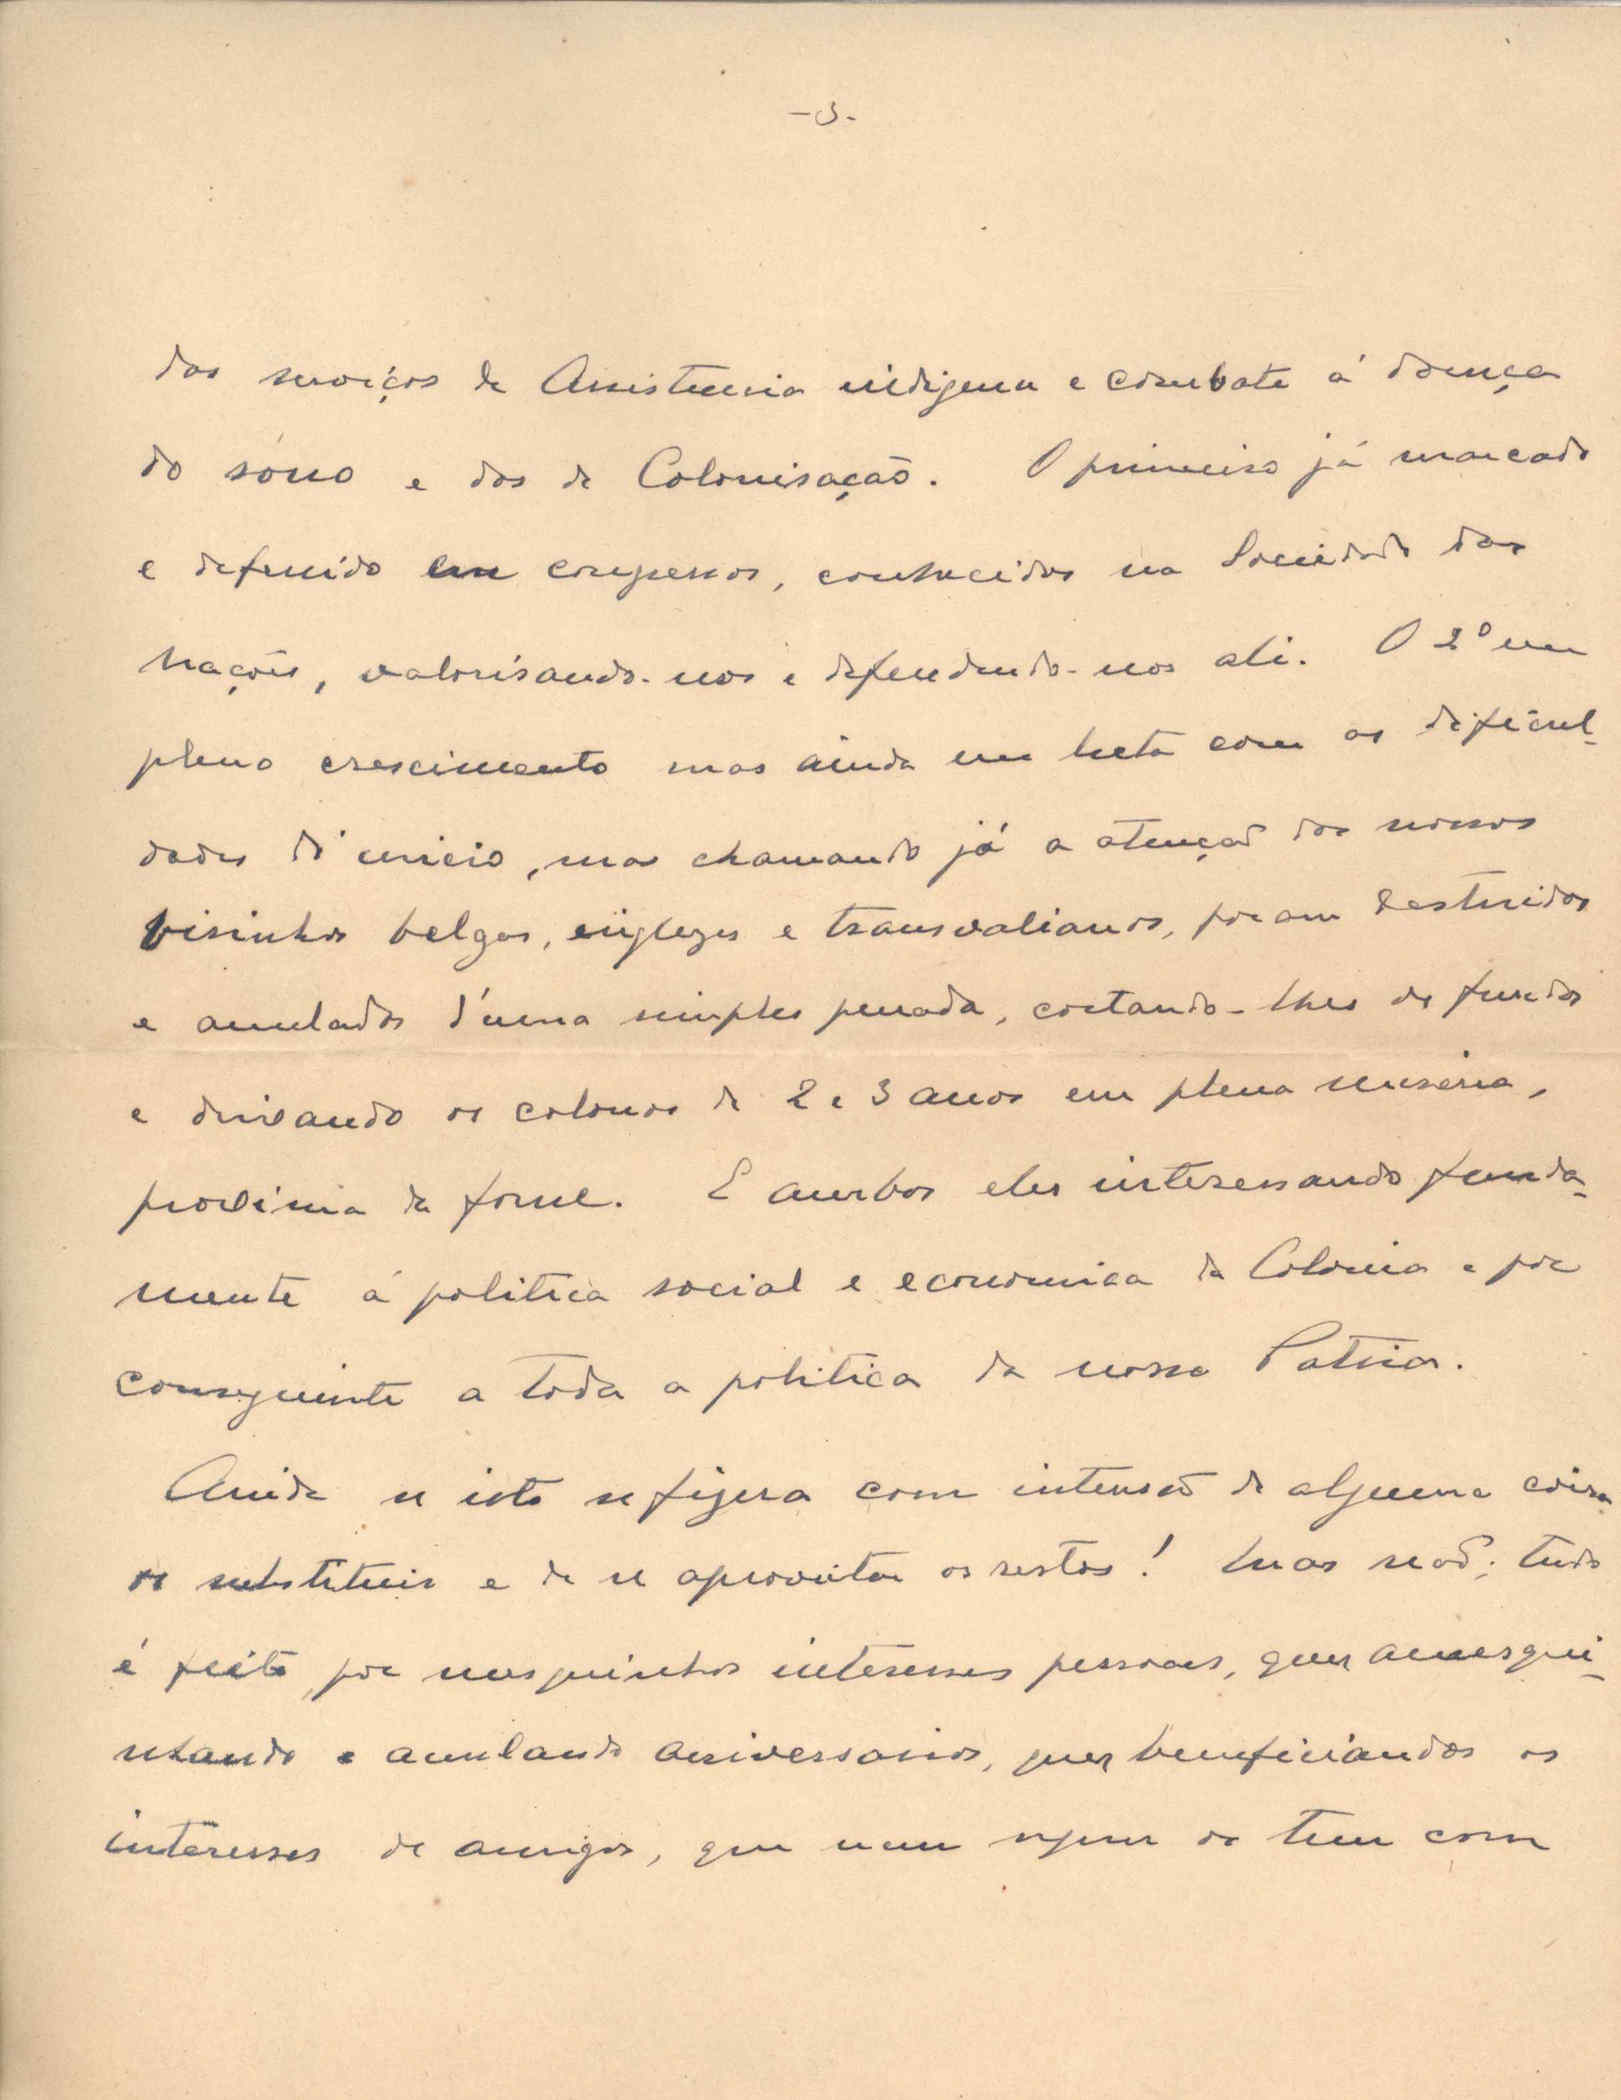 -3-
dos serviços de Assistencia indigena e combate á doença
do sôno e dos de Colonisação. O primeiro já marcado
e definido em congressos, conhecidos na Sociedade das
Nações, valorisando-nos e defendendo-nos ali. O 2º em
pleno crescimento mas ainda em luta com as dificul-
dades d'inicio, mas chamando já a atenção dos nossos
visinhos belgas, inglezes e transvalianos, foram destruidos
e anulados d'uma simples penada, cortando-lhes os fundos
e deixando os colonos de 2 e 3 anos em plena miseria,
proxima da fome. E ambos eles interessando funda-
mente á politica social e economica da Colonia e por
conseguinte a toda a politica da nossa Patria.
Ainda se isto se fizera com intensão de alguma coisa
os substituir e de se aproveitar os restos! Mas não; tudo
é feito por mesquinhos interesses pessoaes, quer amesqui-
nhando e anulando adversarios, quer beneficiandos os
interesses de amigos, que nem sequer os tem com